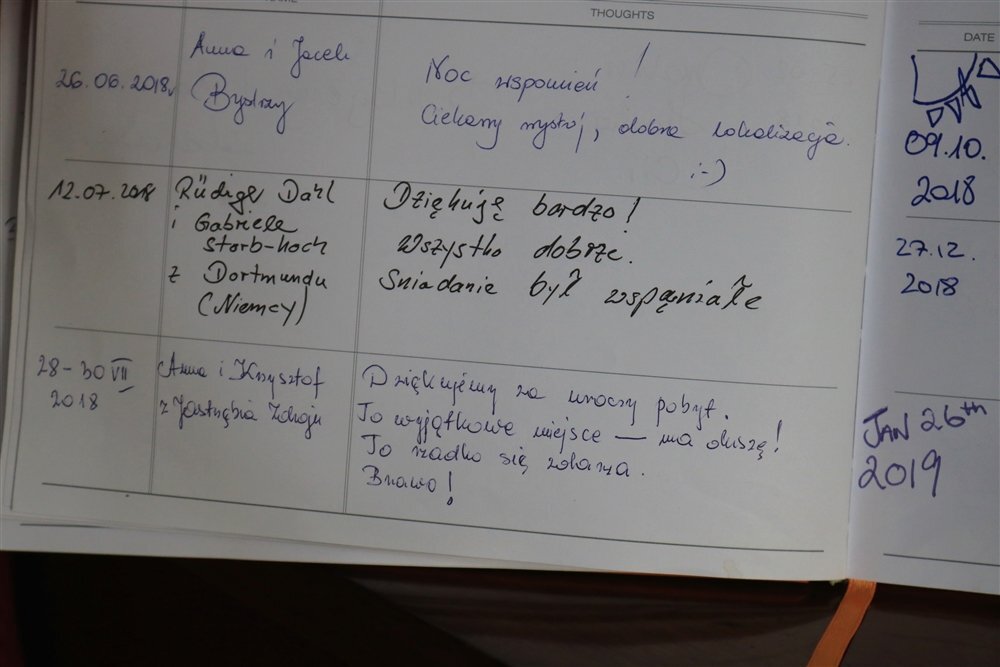 NAME
THOUGHTS
26.06.2018r
Anna i Jacek
Bystrzy
Noc wspomnień!
Ciekawy wystrój, dobra lokalizacja.
;-)
12.07.2018
Rüdiger Dahl
i Gabriele
Storb-Hoch
z Dortmundu
(Niemcy)
Dziękuję bardzo!
Wszystko dobrze.
Sniadanie był wspąniałe
28-30 VII
2018
Anna i Krzysztof
z Jastrzębia Zdroju
Dziękujemy za uroczy pobyt.
To wyjątkowe miejsce — ma duszę!
To rzadko się zdarza.
Brawo!
DATE
09.10.
2018
27.12.
2018
JAN 26th
2019